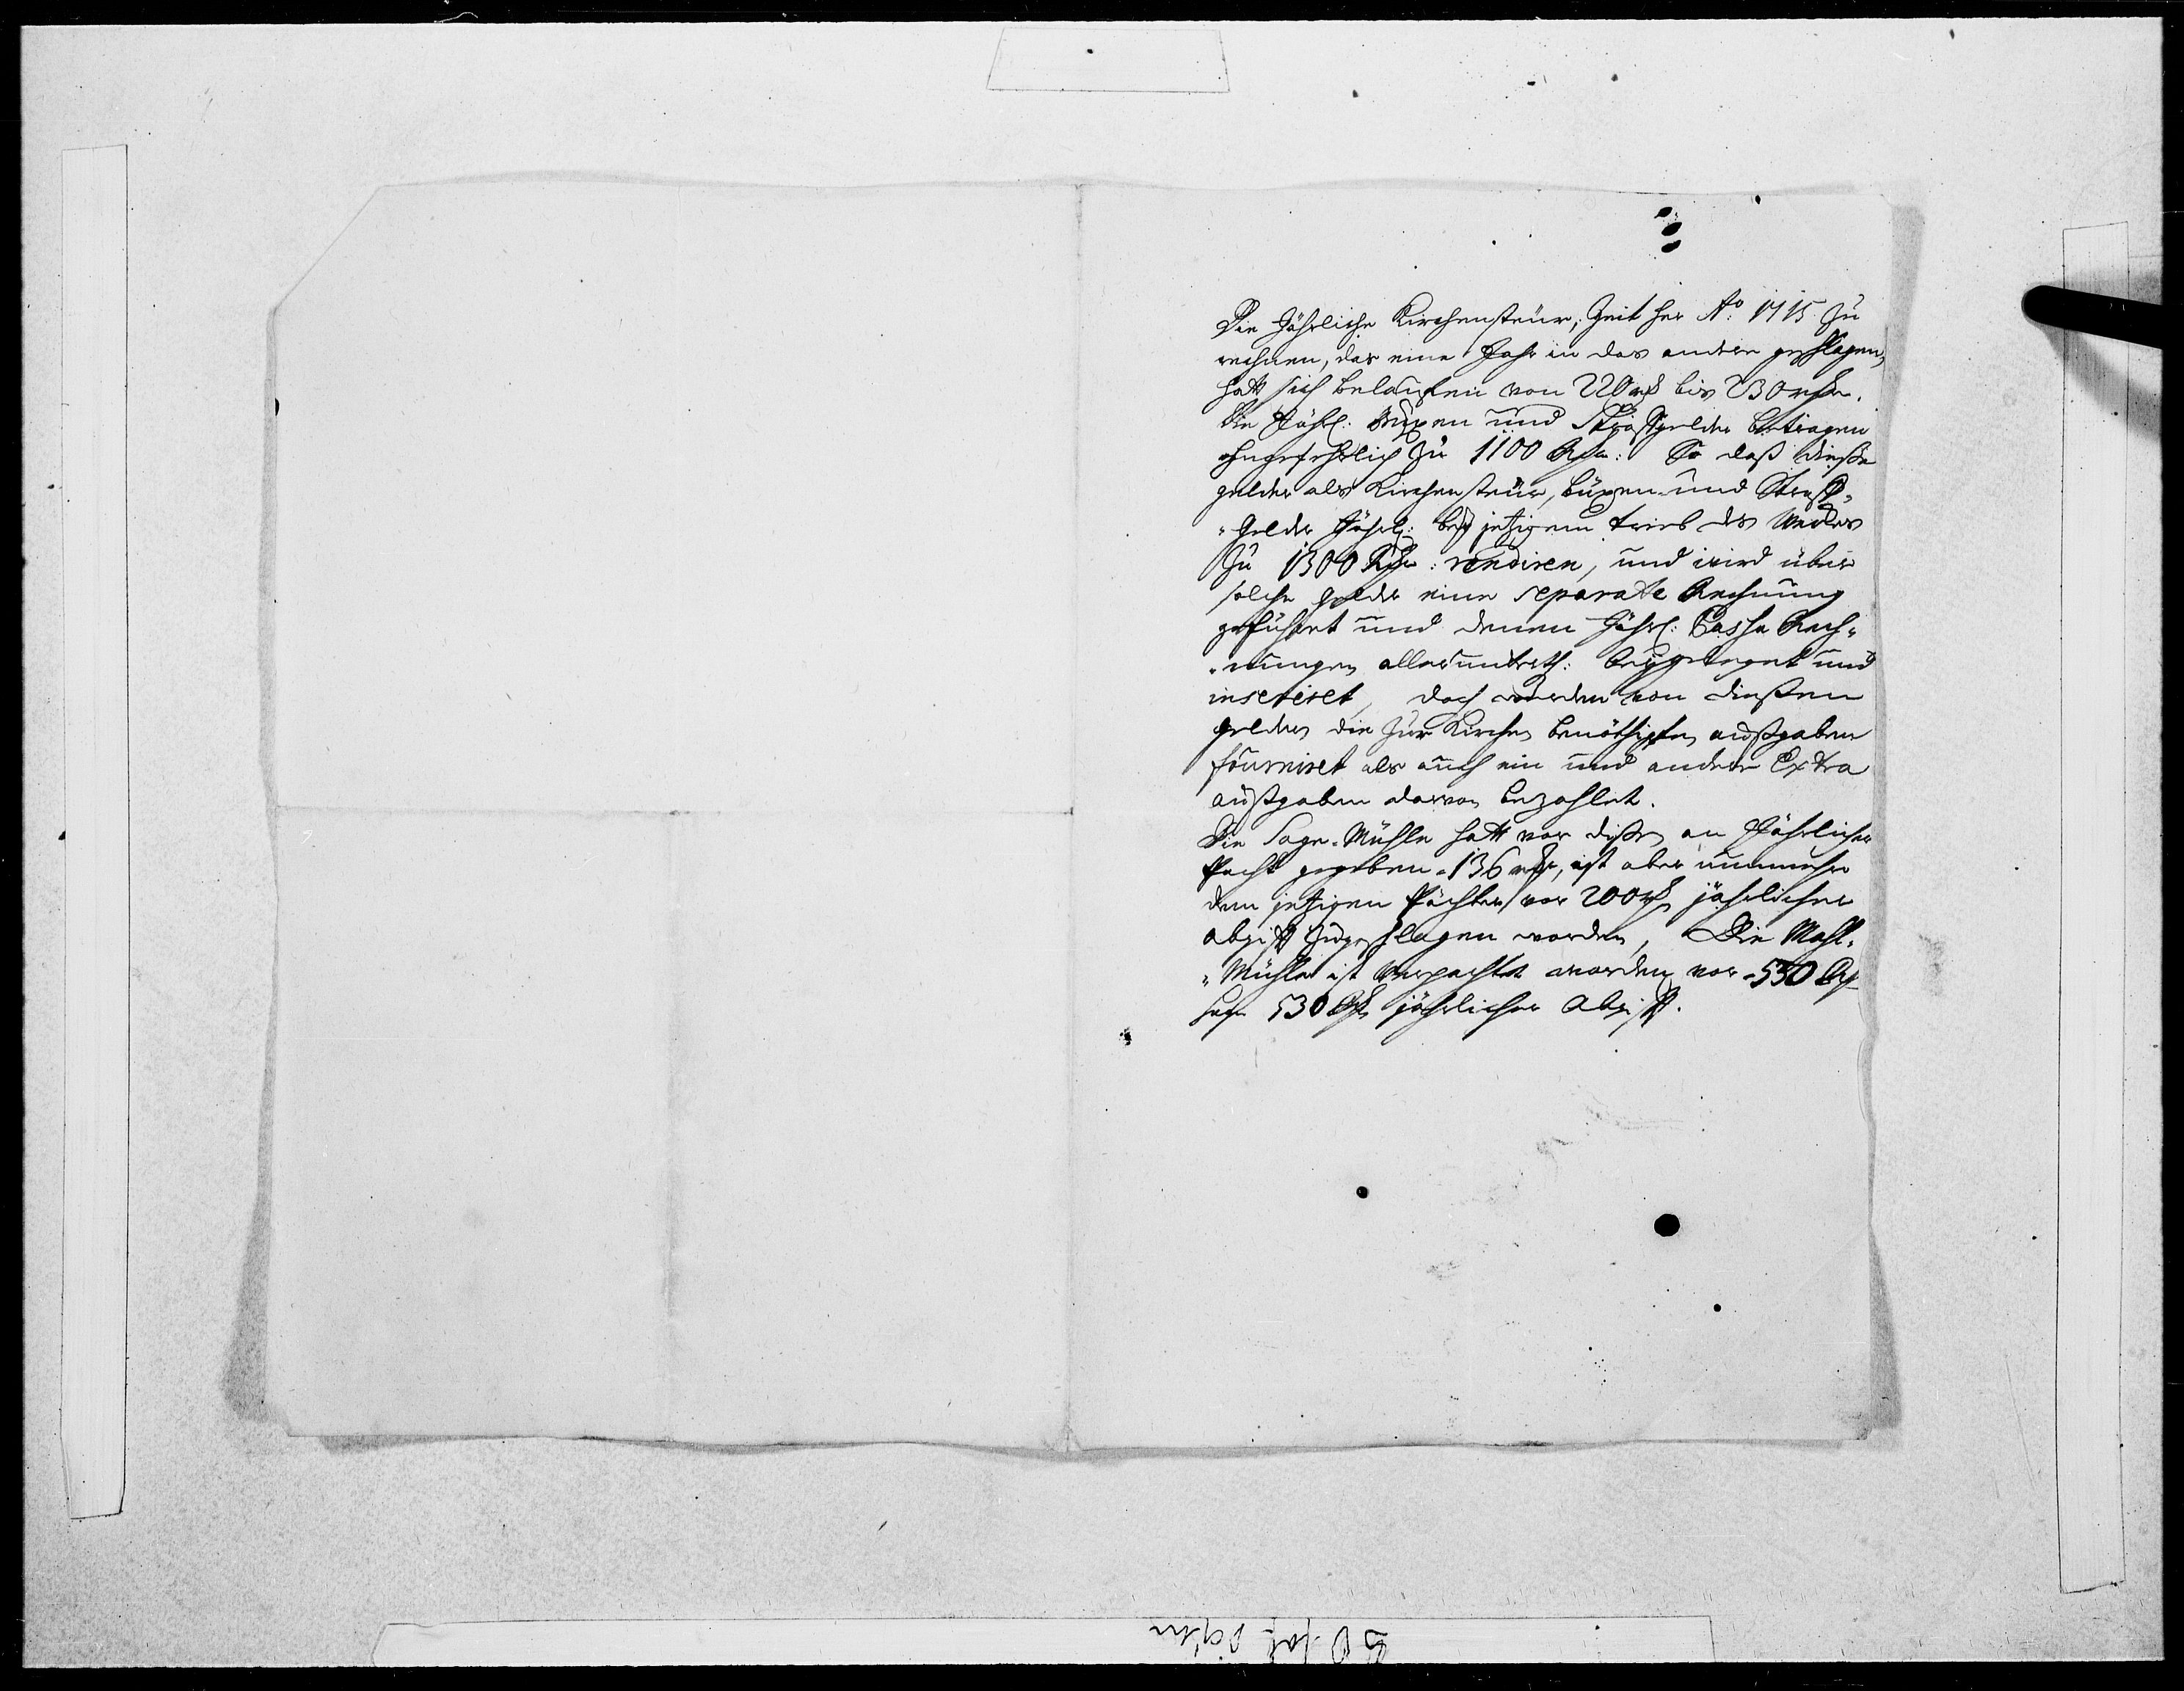 Die Jährliche Kirchensteür, Zeit her Aº. 1715 Zu
rechnen, das eine Jahr in das andere geschlagen,
hatt sich belauffen von 220 rh bis 230 rthr.
Die Jährl: Büxen und Straffgelder betragen
ohngefehrlich Zu 1100 Rthr: So daß dieße
gelder als Kirchensteür, büxen und Straff,,
,,Gelder Jährl: bey jetzigem trieb des Werkes
Zu 1300 Rthr: rendiren, und wird über
solche gelder eine separate Rechnung
geführet und denen Jährl: Cassa Rech,,
,,nungen allerunterth: beygeleget und
inseriret, doch werden von dießen
geldern die Zur Kirchen benöthigten außgaben
fourniret als auch ein und andere Extra
außgaben davon bezahlet.
Die Sage-Mühle hatt vor dießen an Jährlicher
Pacht gegeben 136 rthr, ist aber nunmehro
dem jetzigen Pächter vor 200 rh jährlicher
abgifft Zugeschlagen worden, Die Mahl,,
,,Mühle ist verpachtet worden vor 530 Rh
sage 530 Rthr jährlicher Abgifft.